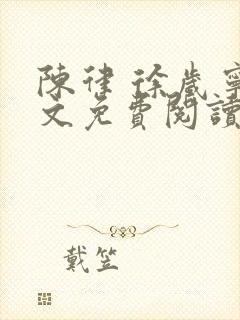 陳律 徐歲寧
文免費閱讀
戴笠